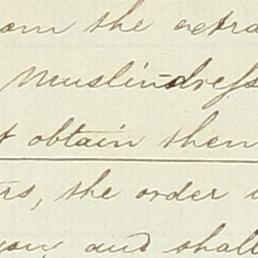 om the extra
Muslin dress
t obtain then
rs, the order
you, and shall